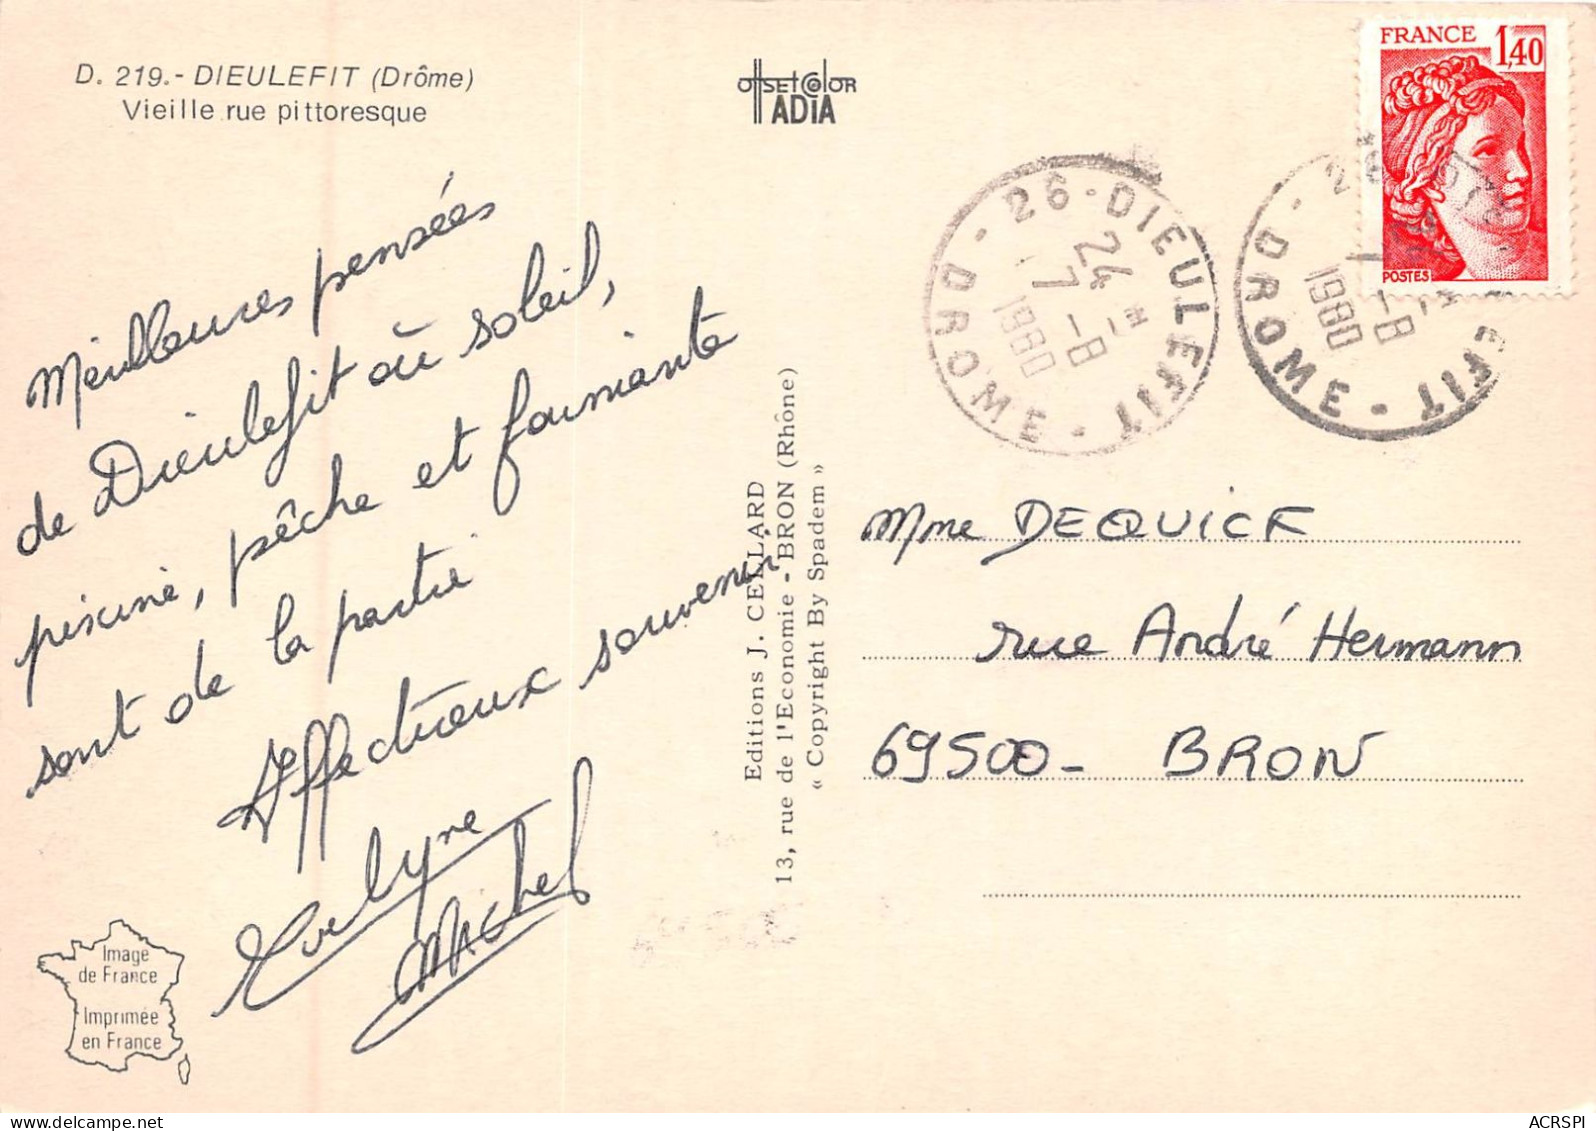 D. 219.- DIEULEFIT (Drôme)
Vieille rue pittoresque
Meilleures pensées
de Dieulefit où soleil,
piscine, pêche et farniente
sont de la partie
Affectueux souvenir
Evelyne
Michel
Image
de France
Imprimée
en France
OffsetColor
ADIA
Editions J. CELLARD
13, rue de l'Economie - BRON (Rhône)
« Copyright By Spadem »
FRANCE 1,40
POSTES
26 - DIEULEFIT - DROME -
24 - 7 - 8
1980
26 - DIEULEFIT - DROME -
- 8
1980
Mme DEQUICK
rue André Hermann
69500 - BRON
ACRSPI